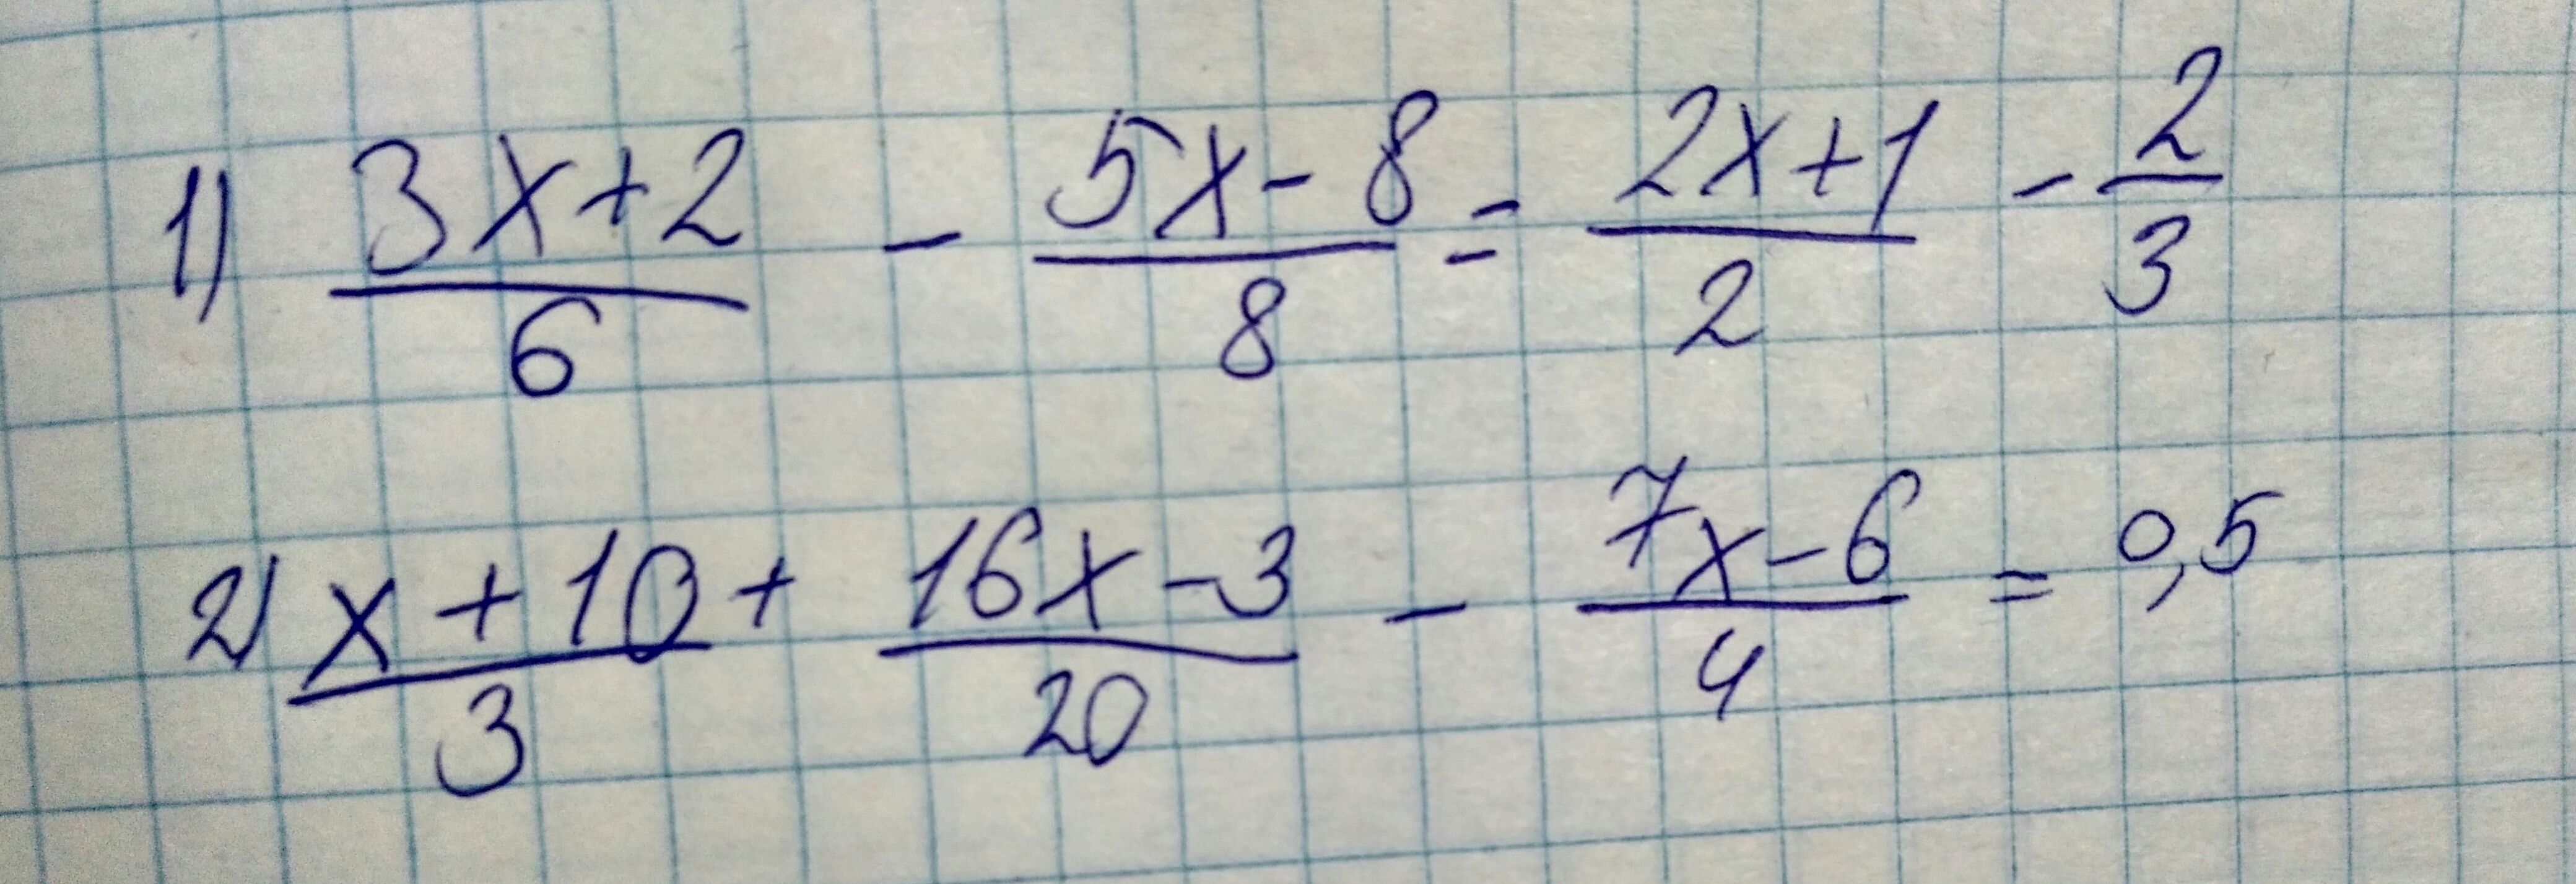 1) (3x+2)/6 - (5x-8)/8 = (2x+1)/2 - 2/3
2) (x+10)/3 + (16x-3)/20 - (7x-6)/4 = 0,5